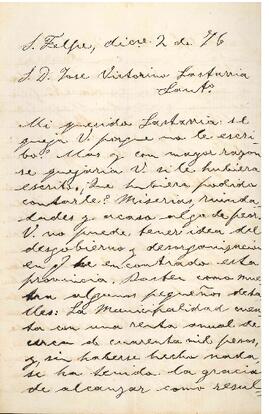 S. Felpe, dicre. 2 de 76
S. D. Jose Victorino Lastarria
Santo.
Mi querido Lastarria: se
queja V. porque no le escri-
bo? Mas y con mayor razon
se quejaria V. si le hubiera
escrito, ¿Que hubiera podido
contarle? Miserias, ruin-
dades y acaso algo de peor.
V. no puede tener idea del
desgobierno y desorganizacion
en q. he encontrado esta
provincia. Basten como mues-
tra algunos pequeños deta-
lles: La Municipalidad cuen-
ta con una renta anual de
cerca de cuarenta mil pesos,
y, sin haberse hecho nada,
se ha tenido la gracia
de alcanzar como resul-